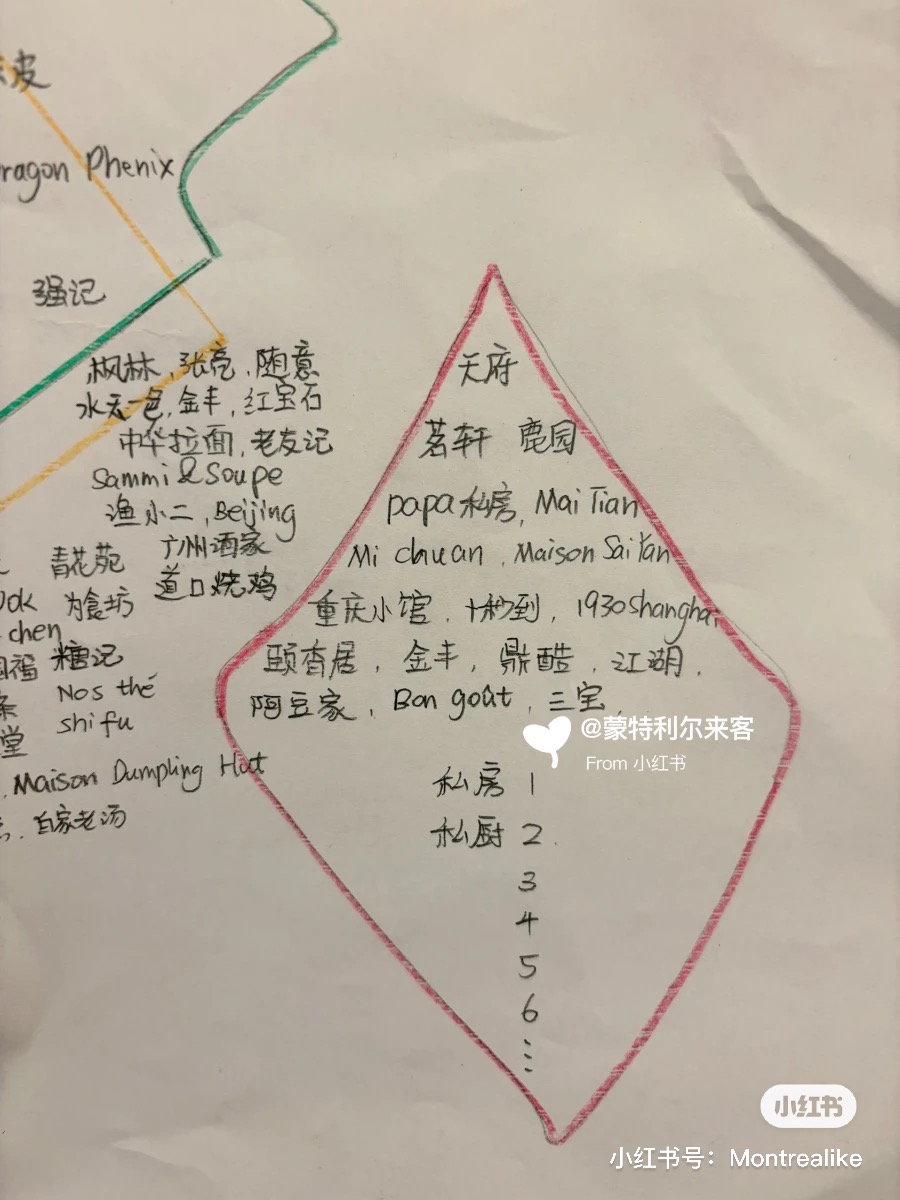 皮
ragon Phenix
强记
枫林,张亮,随意
水天一色,金丰,红宝石
中华拉面,老友记
Sammi & Soupe
渔小二,Beijing
广州酒家
青花苑
道口烧鸡
ook 为食坊
chen
福 糖记
Nos thé
条
shifu
堂
, Maison Dumpling Hut
, 自家老汤
天府
茗轩 鹿园
papa私房, Mai Tian
Mi chuan, Maison SaiTan
重庆小馆,十秒到,1930 Shanghai
颐香居,金丰,鼎酷,江湖,
阿豆家,Bon goût,三宝,
私房 1
私厨 2.
3
4
5
6
⋮
@蒙特利尔来客
From 小红书
小红书
小红书号：Montrealike